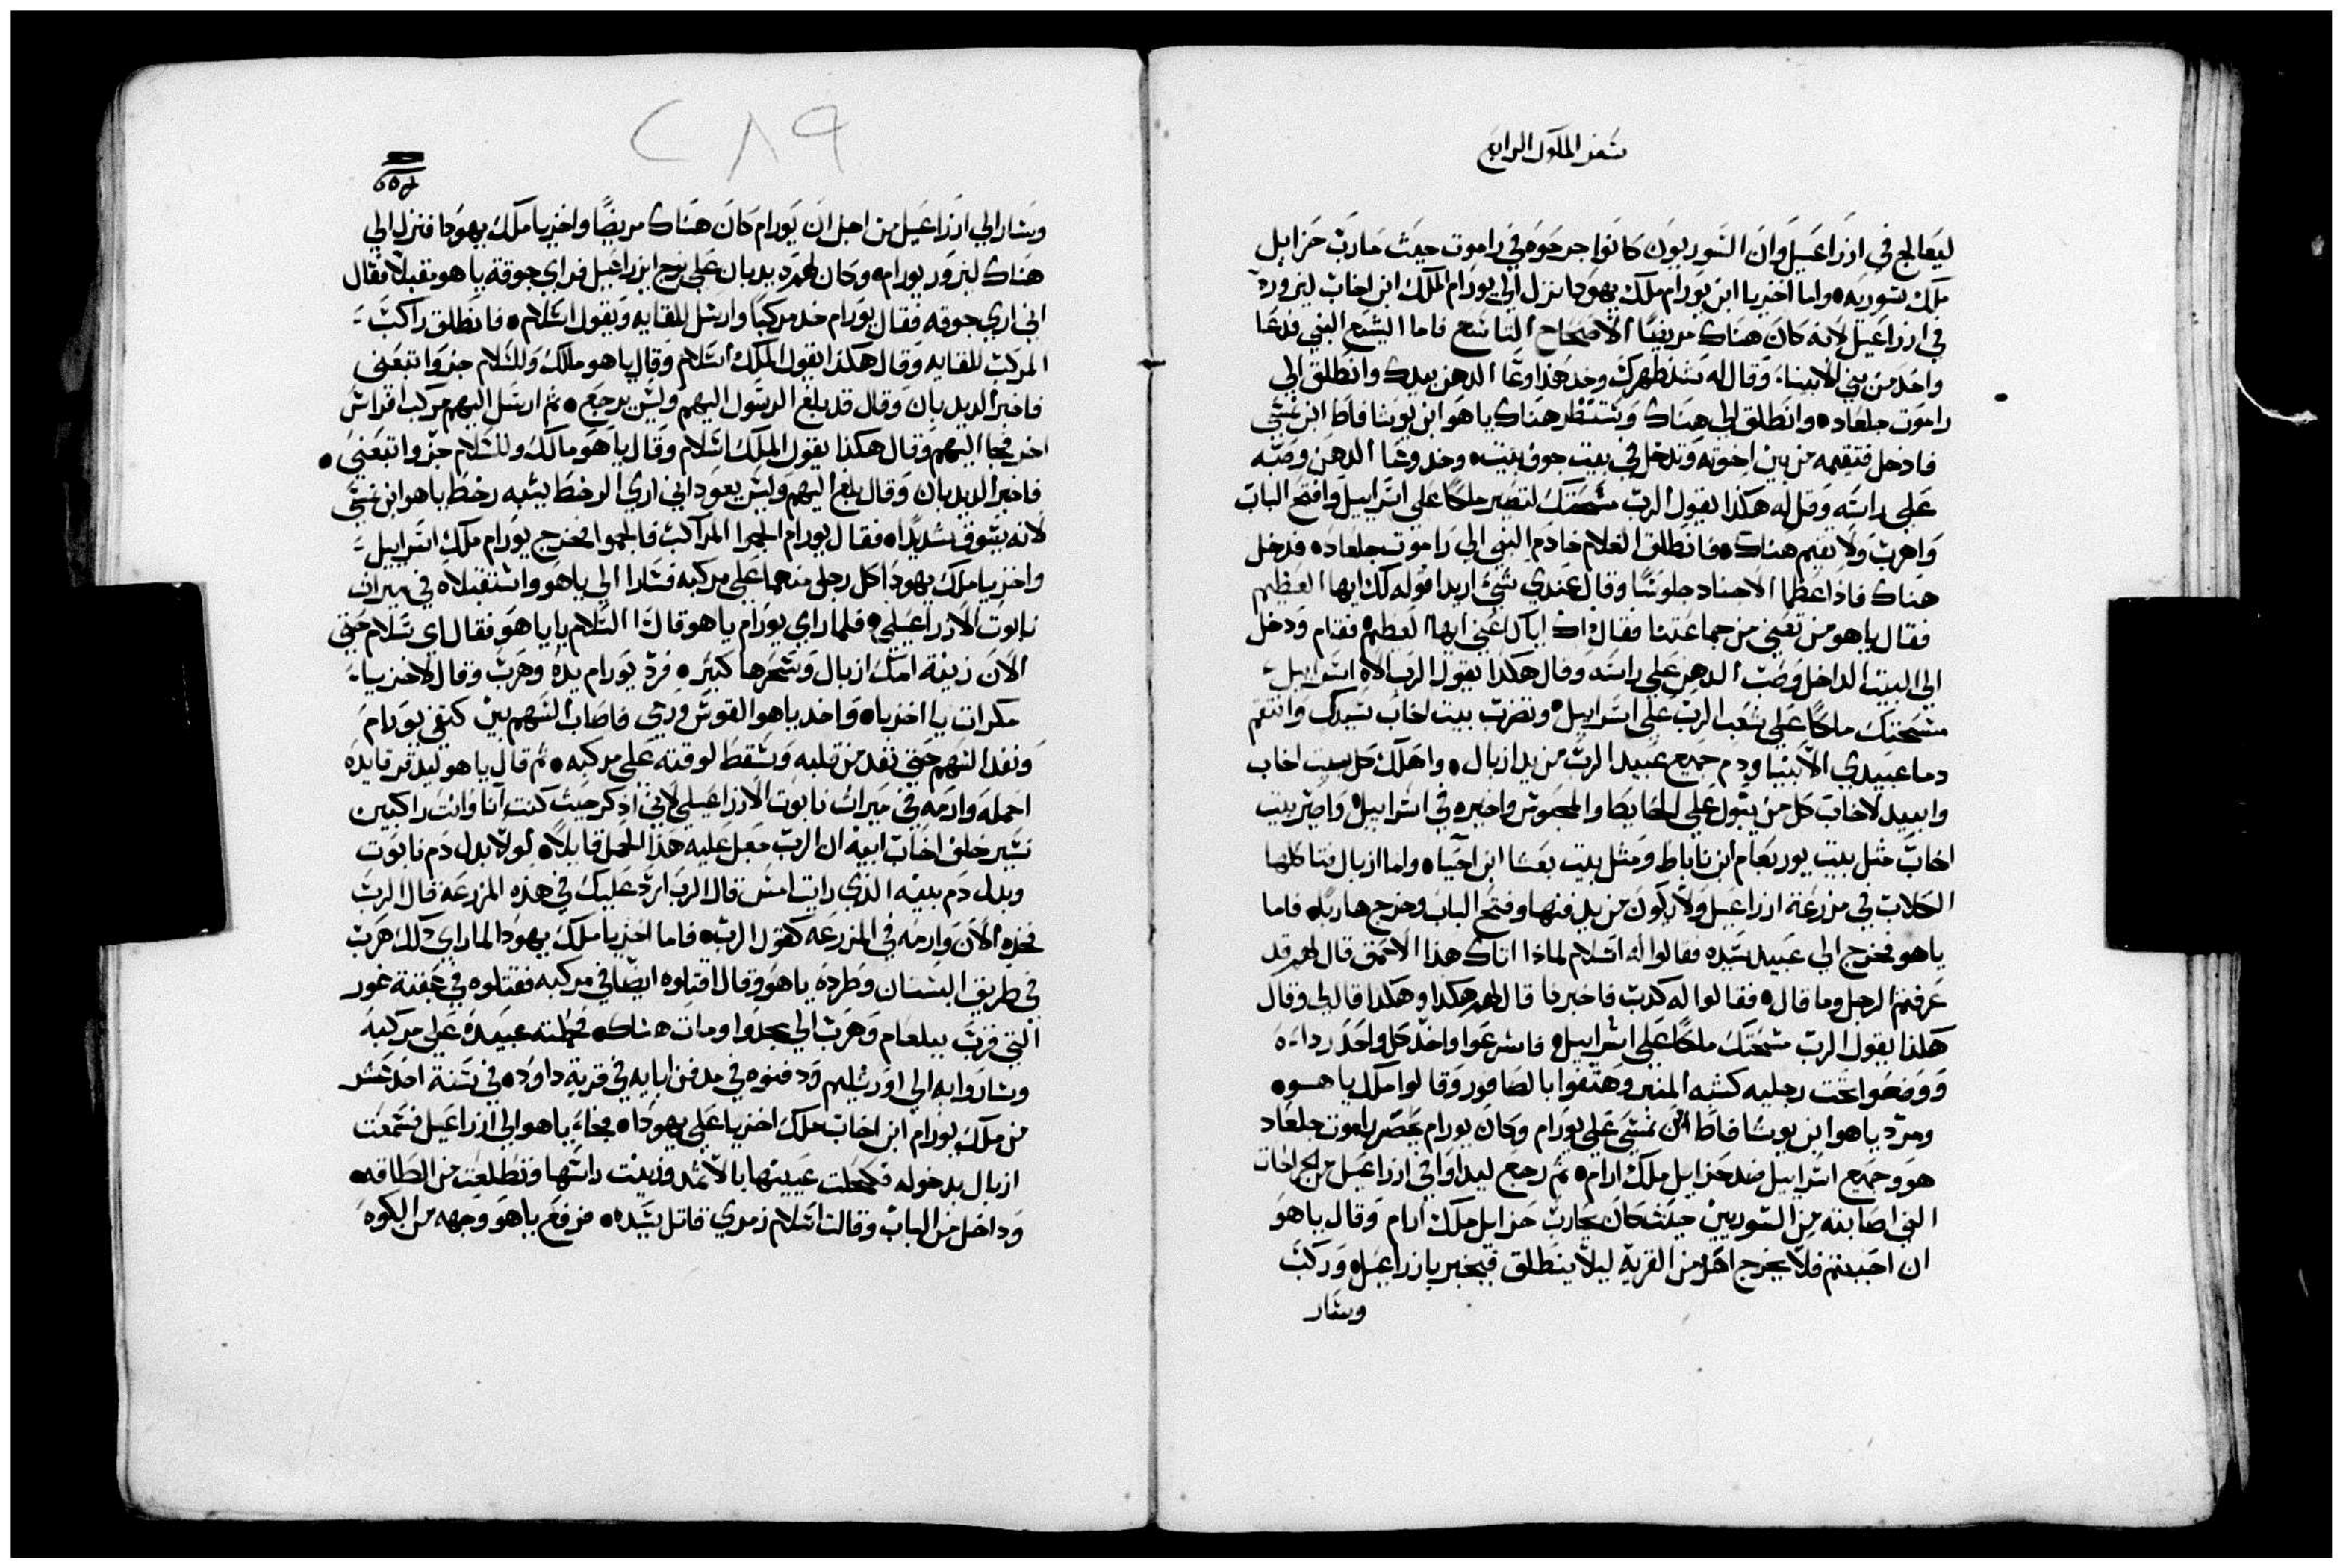 سفر الملوك الرابع
ليعالج في ازراعيل وان السوريون كانوا جرحوه في راموت حيث حارب حزايل
ملك سوريه، واما اخزيا ابن يورام ملك يهودا نزل الي يورام الملك ابن اخاب ليزوره
في ازراعيل لانه كان هناك مريضا الاصحاح التاسع فاما اليشع النبي فدعا
واحد من بني الانبياء وقال له شد ظهرك وخد هذا وعا الدهن بيدك وانطلق الي
راموت جلعاد، وانطلق الي هناك وستنظر هناك ياهو ابن يوشافاط ابن نمشي
فادخل فتقيمه من بين اخوته وتدخل في بيت جوف بيت، وخد وعا الدهن وصبه
علي راسه وقل له هكذا يقول الرب مسحتك لتصير ملكا علي اسراييل وافتح الباب
واهرب ولا تقيم هناك، فانطلق الغلام خادم النبي الي راموت جلعاد، فدخل
هناك فاذا عظما الاجناد جلوسا وقال عندي شي اريد اقوله لك ايها العظيم
فقال ياهو من تعني من جماعتنا فقال اك اياك اعني ايها العظيم، فقام ودخل
الي البيت الداخل وصب الدهن علي راسه وقال هكذا يقول الرب الاه اسراييل
مسحتك ملكا علي شعب الرب علي اسراييل، وتضرب بيت اخاب سيدك وانتقم
دما عبيدي الانبيا ودم جميع عبيد الرب من يد ازبال، واهلك كل بيت اخاب
وابيد لاخاب كل من يبول علي الحايط والمحبوس واخيره في اسراييل، واصير بيت
اخاب مثل بيت يوربعام ابن ناباط ومثل بيت بعسا ابن احيا، واما ازبال فتاكلها
الكلاب في مزرعة ازراعيل ولا يكون من يدفنها وفتح الباب وخرج هاربا، فاما
ياهو فخرج الي عبيد سيده فقالوا له اسلام لماذا اتاك هذا الاحمق قال لهم قد
عرفتم الرجل وما قال، فقالوا له كدبت فاخبرنا قال لهم هكذا وهكذا قال لي وقال
هكذا يقول الرب مسحتك ملكا علي اسراييل، فاسرعوا واخد كل واحد رداءه
ووضعوا تحت رجليه كشبه المنبر وهتفوا بالصافور وقالوا ملك ياهوه
ومرد ياهو ابن يوشافاط ابن نمشي علي يورام وكان يورام يحصر راموت جلعاد
هو وجميع اسراييل ضد حزايل ملك ارام، ثم رجع ليداوا في ازراعيل من الجراحات
التي اصابته من السوريين حيث كان يحارب حزايل ملك ارام وقال ياهو
ان احببتم فلا يخرج احد من القريه ليلا ينطلق فيخبر يازراعيل، وركب
وسار
٢٨٩
وسار الي ازراعيل من اجل ان يورام كان هناك مريضا واخزيا ملك يهودا فنزل الي
هناك ليزور يورام، وكان لهم ديدبان علي برج ازراعيل فراي جوقة ياهو مقبلا فقال
اني اري جوقه فقال يورام خد مركبا وارسل للقايه ويقول اسلام، فانطلق راكب
المركب للقايه وقال هكذا يقول الملك اسلام وقال ياهو مالك وللسلام جز واتبعني
فاخبر الديدبان وقال قد بلغ الرسول اليهم وليس يرجع، ثم ارسل اليهم مركب افراس
اخر فجا اليهم وقال هكذا يقول الملك اسلام وقال ياهو مالك وللسلام جز واتبعني،
فاخبر الديدبان وقال بلغ اليهم وليس يعود اني اري الرخط يشبه رخط ياهو ابن نمشي
لانه يسوق شديدا، فقال يورام الجموا المراكب فالجموا فخرج يورام ملك اسراييل
واخزيا ملك يهودا كل رجل منهما علي مركبه فسارا الي ياهو واستقبلاه في ميراث
نابوت الازراعيلي، فلما راي يورام ياهو قال االسلام يا ياهو فقال اي سلام حتي
الان زيفة امك ازبال وسحرها كبير، فرد يورام يده وهرب وقال لاخزيا
مكرات يا اخزيا، واخد ياهو القوس ورمي فاصاب السهم بين كتفي يورام
ونفد السهم حتي نفد من قلبه وسقط لوقته علي مركبه، ثم قال ياهو لبدقر قايده
احمله وارمه في ميراث نابوت الازراعيلي لاني ادكر حيث كنت انا وانت راكبين
نسير خلف اخاب ابيه ان الرب جعل عليه هذا الحمل قايلا، لولا بدل دم نابوت
وبدل دم بنيه الذي رايت امس قال الرب ارد عليك في هذه المزرعه قال الرب
فخده الان وارمه في المزرعه كقول الرب، فاما اخزيا ملك يهودا لما راي ذلك هرب
في طريق البستان وطرده ياهو وقال اقتلوه ايضا في مركبه فقتلوه في عقبة غور
التي قرب يبلعام وهرب الي مجدوا ومات هناك، فحملته عبيده علي مركبه
وساروا به الي اورشليم ودفنوه في مدفن ابايه في قرية داود، في سنة احد عشر
من ملك يورام ابن اخاب ملك اخزيا علي يهودا، فجاء ياهو الي ازراعيل فسمعت
ازبال بدخوله فكحلت عيينها بالاثمد وزينت راسها وتطلعت من الطاقه،
وداخل من الباب وقالت اسلام زمري قاتل سيده، فرفع ياهو وجهه من الكوه